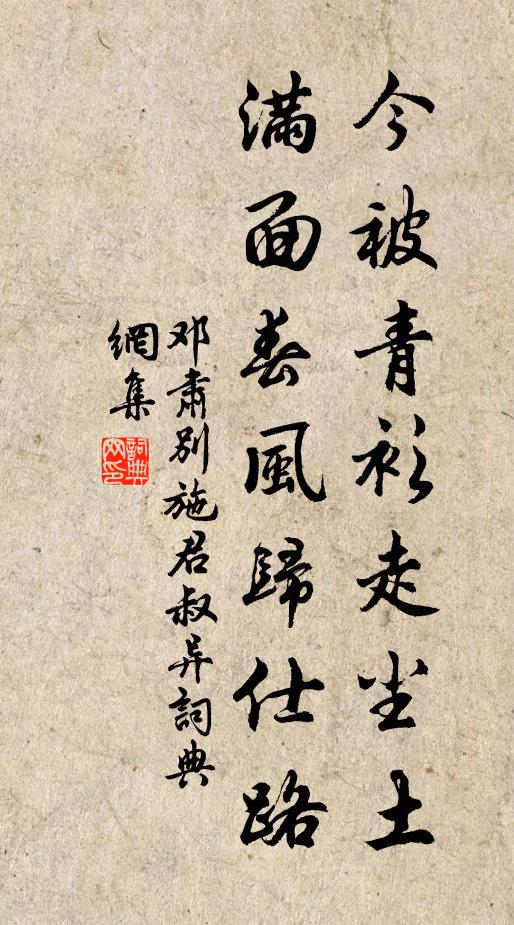 今被青衫走尘土
满面春風歸仕路
邓肃别施君叔异詞典
網集
詞典
网印